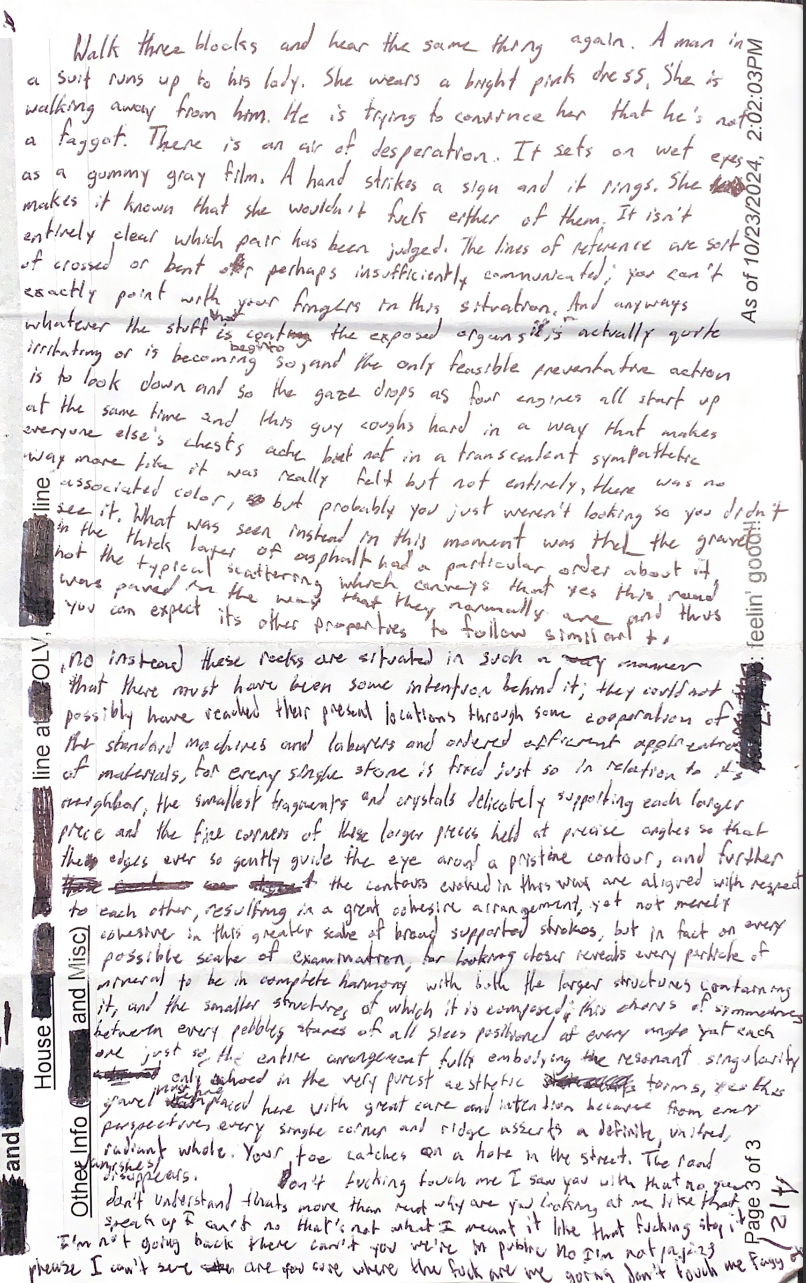 Walk three blocks and hear the same thing again. A man in
a suit runs up to his lady. She wears a bright pink dress. She is
walking away from him. He is trying to convince her that he's not
a faggot. There is an air of desperation. It sets on wet eyes
as a gummy gray film. A hand strikes a sign and it rings. She
makes it known that she wouldn't fuck either of them. It isn't
entirely clear which pair has been judged. The lines of reference are sort
of crossed or bent or perhaps insufficiently communicated; you can't
exactly point with your fingers in this situation. And anyways
whatever the stuff that is coating the exposed organs it is actually quite
irritating or is becoming begins to so, and the only feasible preventative action
is to look down and so the gaze drops as four engines all start up
at the same time and this guy coughs hard in a way that makes
everyone else's chests ache but not in a transcendent sympathetic
way more like it was really felt but not entirely, there was no
associated color, but probably you just weren't looking so you didn't
see it. What was seen instead in this moment was that the gravel
in the thick layer of asphalt had a particular order about it,
not the typical scattering which conveys that yes this road
was paved in the way that they normally are and thus
you can expect its other properties to follow similarly,
no instead these rocks are situated in such a manner
that there must have been some intention behind it; they could not
possibly have reached their present locations through some cooperation of
the standard machines and laborers and ordered efficient application
of materials, for every single stone is fixed just so in relation to its
neighbor, the smallest fragments and crystals delicately supporting each larger
piece and the fine corners of these larger pieces held at precise angles so that
the edges ever so gently guide the eye around a pristine contour, and further
the contours evoked in this way are aligned with respect
to each other, resulting in a great cohesive arrangement, yet not merely
cohesive in this greater scale of broad supported strokes, but in fact on every
possible scale of examination, for looking closer reveals every particle of
mineral to be in complete harmony with both the larger structures containing
it, and the smaller structures of which it is composed; this chorus of symmetries
between every pebble, stones of all sizes positioned at every angle yet each
one just so, the entire arrangement fully embodying the resonant singularity
only echoed in the very purest aesthetic forms, yes this
gravel placed here with great care and intention because from every
perspective, every single corner and ridge asserts a definite, unified,
radiant whole. Your toe catches on a hole in the street. The road
vanishes/
disappears. Don't fucking touch me I saw you with that no you
don't understand thats more than rent why are you looking at me like that
speak up I can't no that's not what I meant it like that fucking stop it
I'm not going back there can't you we're in public no I'm not paying
please I can't are you sure where the fuck are we going don't touch me
As of 10/23/2024, 2:02:03PM
: feelin' good!!
Page 3 of 3
4/21
line
line at OLV,
House
Other Info ( and Misc)
and